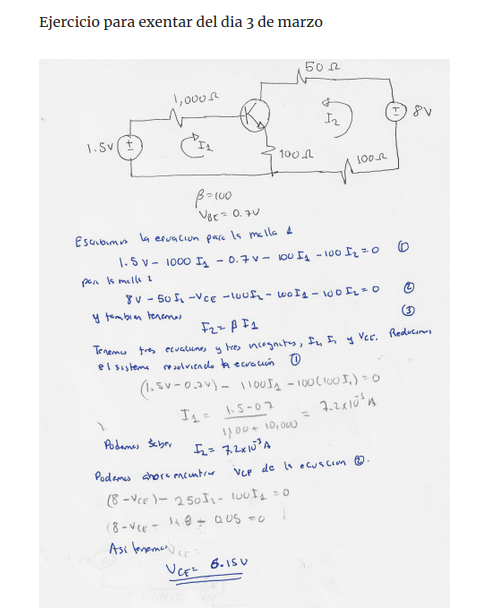 Ejercicio para exentar del dia 3 de marzo
50 Ω
1,000 Ω
8V
I2
1.5V
I1
100Ω
100Ω
β=100
VBE = 0.7V
Escribimos la ecuacion para la malla 1
1.5V - 1000 I1 - 0.7V - 100 I1 - 100 I2 = 0 ①
para la malla 2
8V - 50 I2 - VCE - 100 I2 - 100 I1 - 100 I2 = 0 ②
y tambien tenemos ③
I2 = β I1
Tenemos tres ecuaciones y tres incognitas, I1, I2 y VCE. Reducimos
el sistema resolviendo la ecuación ①
(1.5V - 0.7V) - 1100 I1 - 100(100 I1) = 0
I1 = 1.5 - 0.7 / 1,100 + 10,000 = 7.2x10⁻⁵ A
Podemos saber I2 = 7.2x10⁻³ A
Podemos ahora encontrar VCE de la ecuacion ②.
(8 - VCE) - 250 I2 - 100 I1 = 0
(8 - VCE - 1.8 - 0.05 = 0
Asi tenemos
VCE = 6.15V